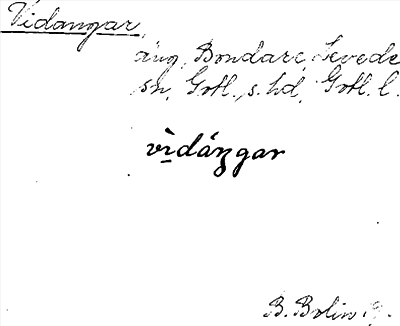 Vidangar,
äng, Bondarc, Levede
sn, Gotl. s. hd, Gotl. l.
vìdáŋgar
B. Bolin